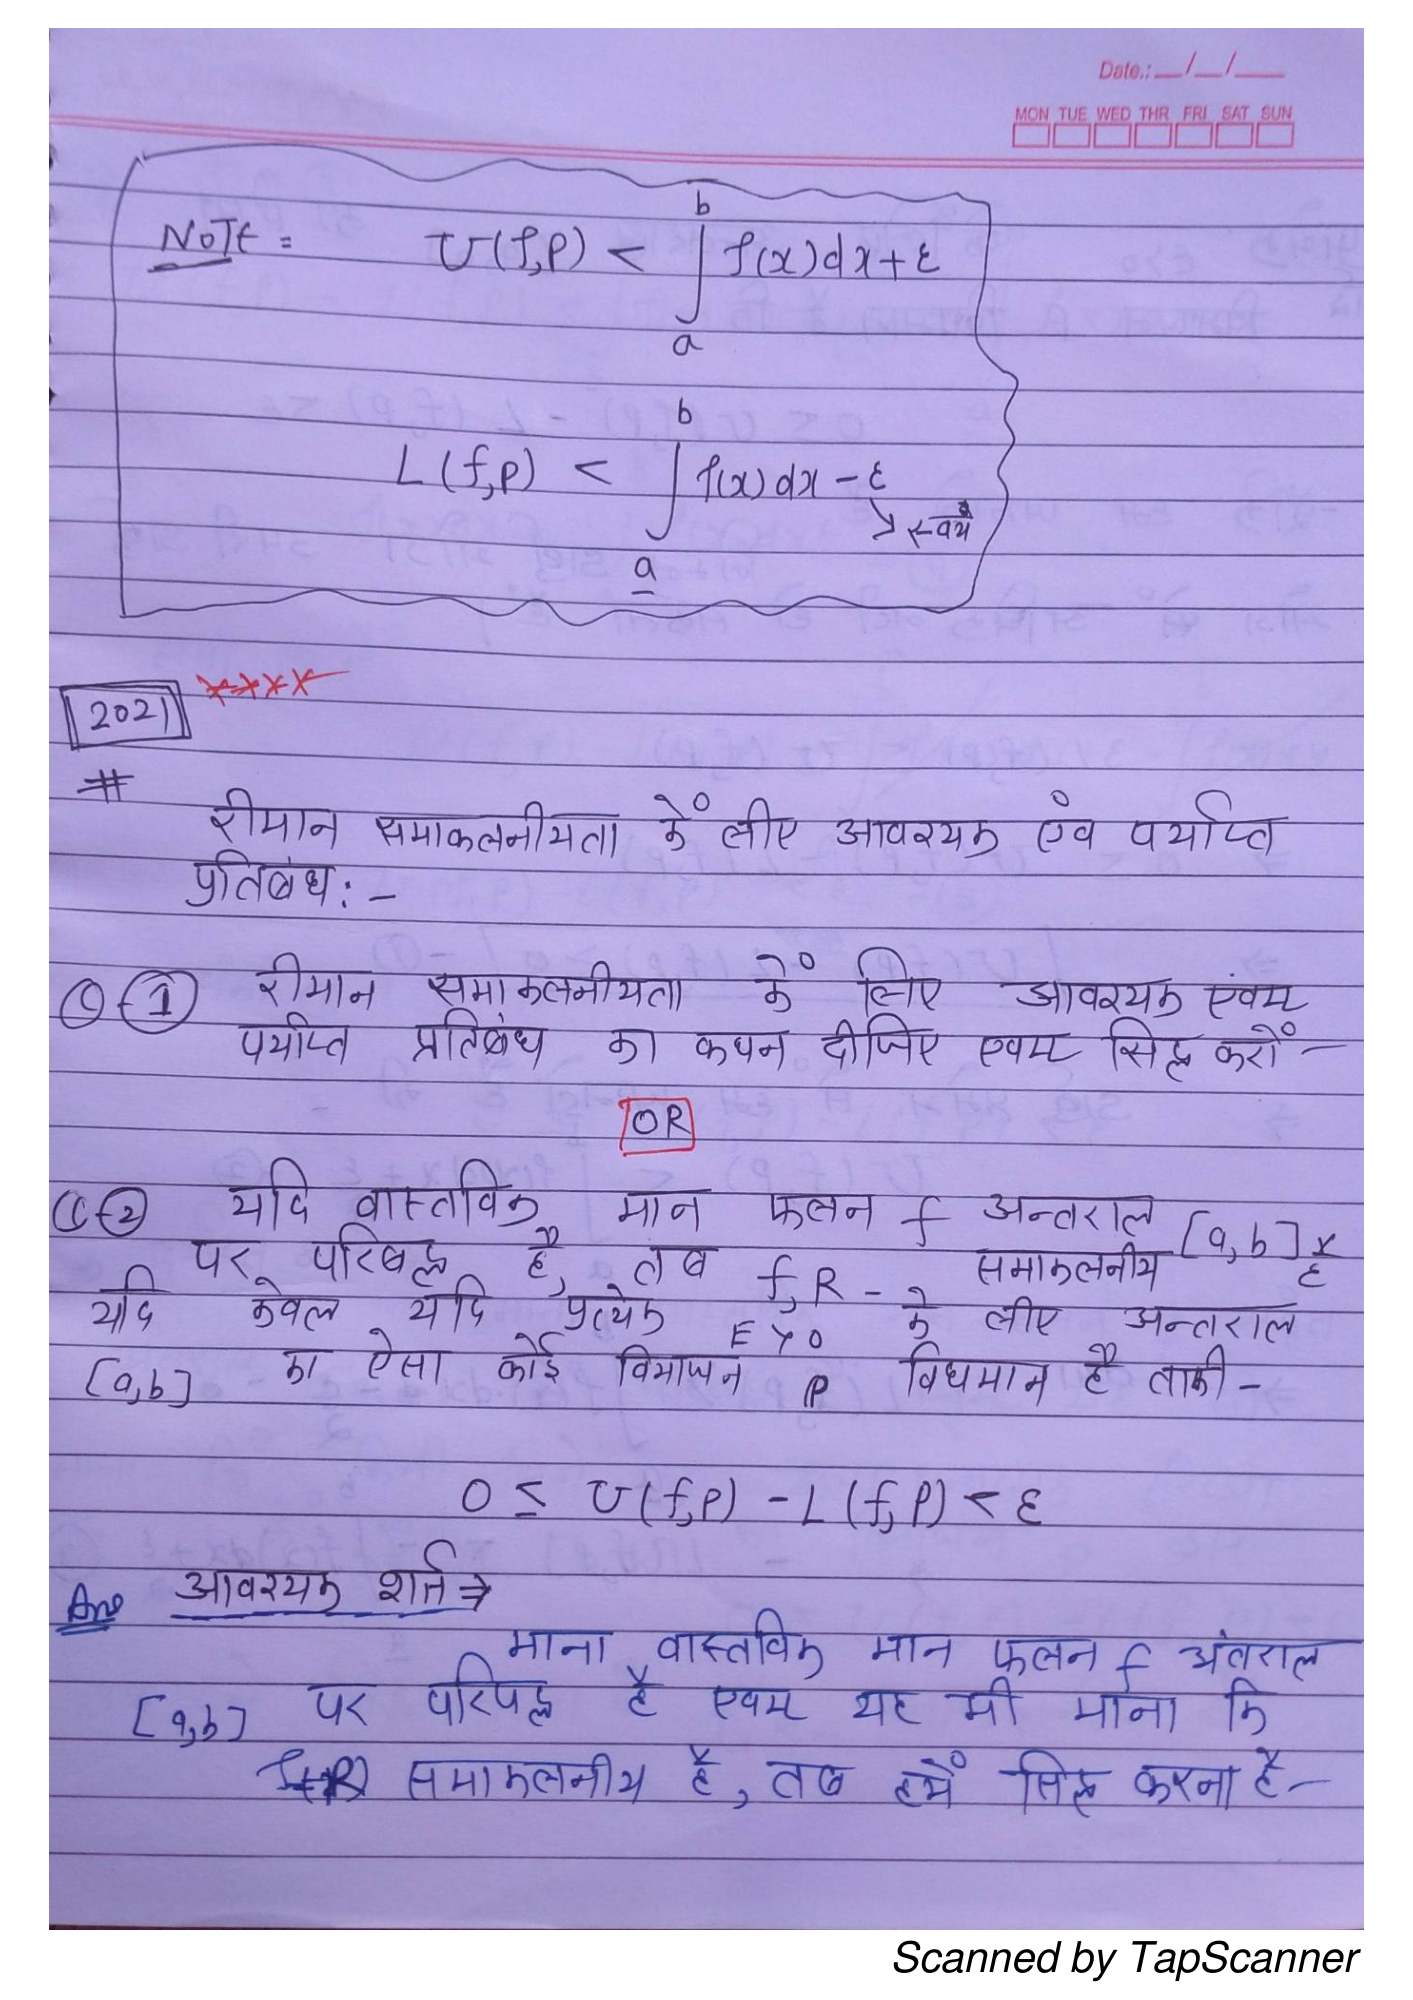 Date.: __/__/__
MON TUE WED THR FRI SAT SUN
NOTE = U(f,P) < ∫ₐᵇ f(x)dx + ε
L(f,P) < ∫ₐᵇ f(x)dx - ε
2021 ××××
#
रीमान समाकलनीयता कें लीए आवश्यक एंव पर्याप्त
प्रतिबंध : -
Q-1 रीमान समाकलनीयता कें लिए आवश्यक एंवम
पर्याप्त प्रतिबंध का कथन दीजिए एवम सिद्ध करों -
OR
Q-2 यदि वास्तविक मान फलन f अन्तराल [a,b]
पर परिबद्ध है, तब f, R - समाकलनीय है
यदि केवल यदि प्रत्येक ε>0 के लीए अन्तराल
[a,b] का ऐसा कोई विभाजन P विधमान है ताकी -
0 ≤ U(f,P) - L(f,P) < ε
Ans आवश्यक शर्त ⇒
माना वास्तविक मान फलन f अंतराल
[a,b] पर परिपद्ध है एवम यह भी माना कि
समाकलनीय है, तब हमें सिद्ध करना है -
Scanned by TapScanner